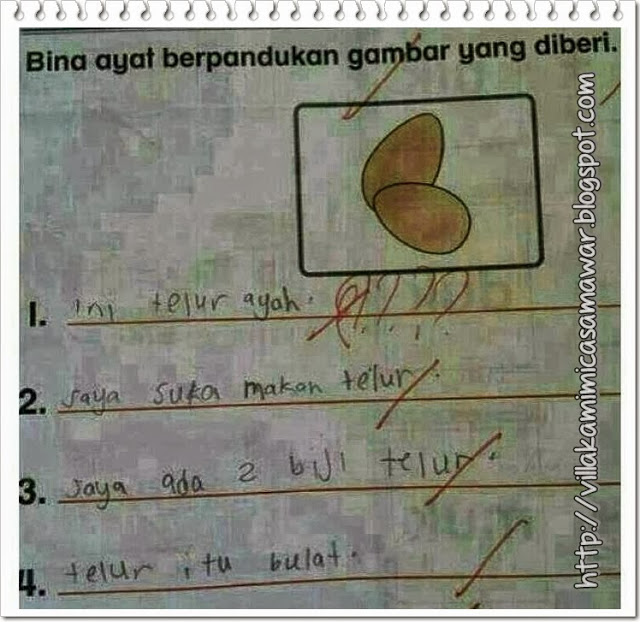 Bina ayat berpandukan gambar yang diberi.
1. ini telur ayah. ????
2. saya suka makan telur.
3. saya ada 2 biji telur.
4. telur itu bulat.
http://villakamimicasamawar.blogspot.com